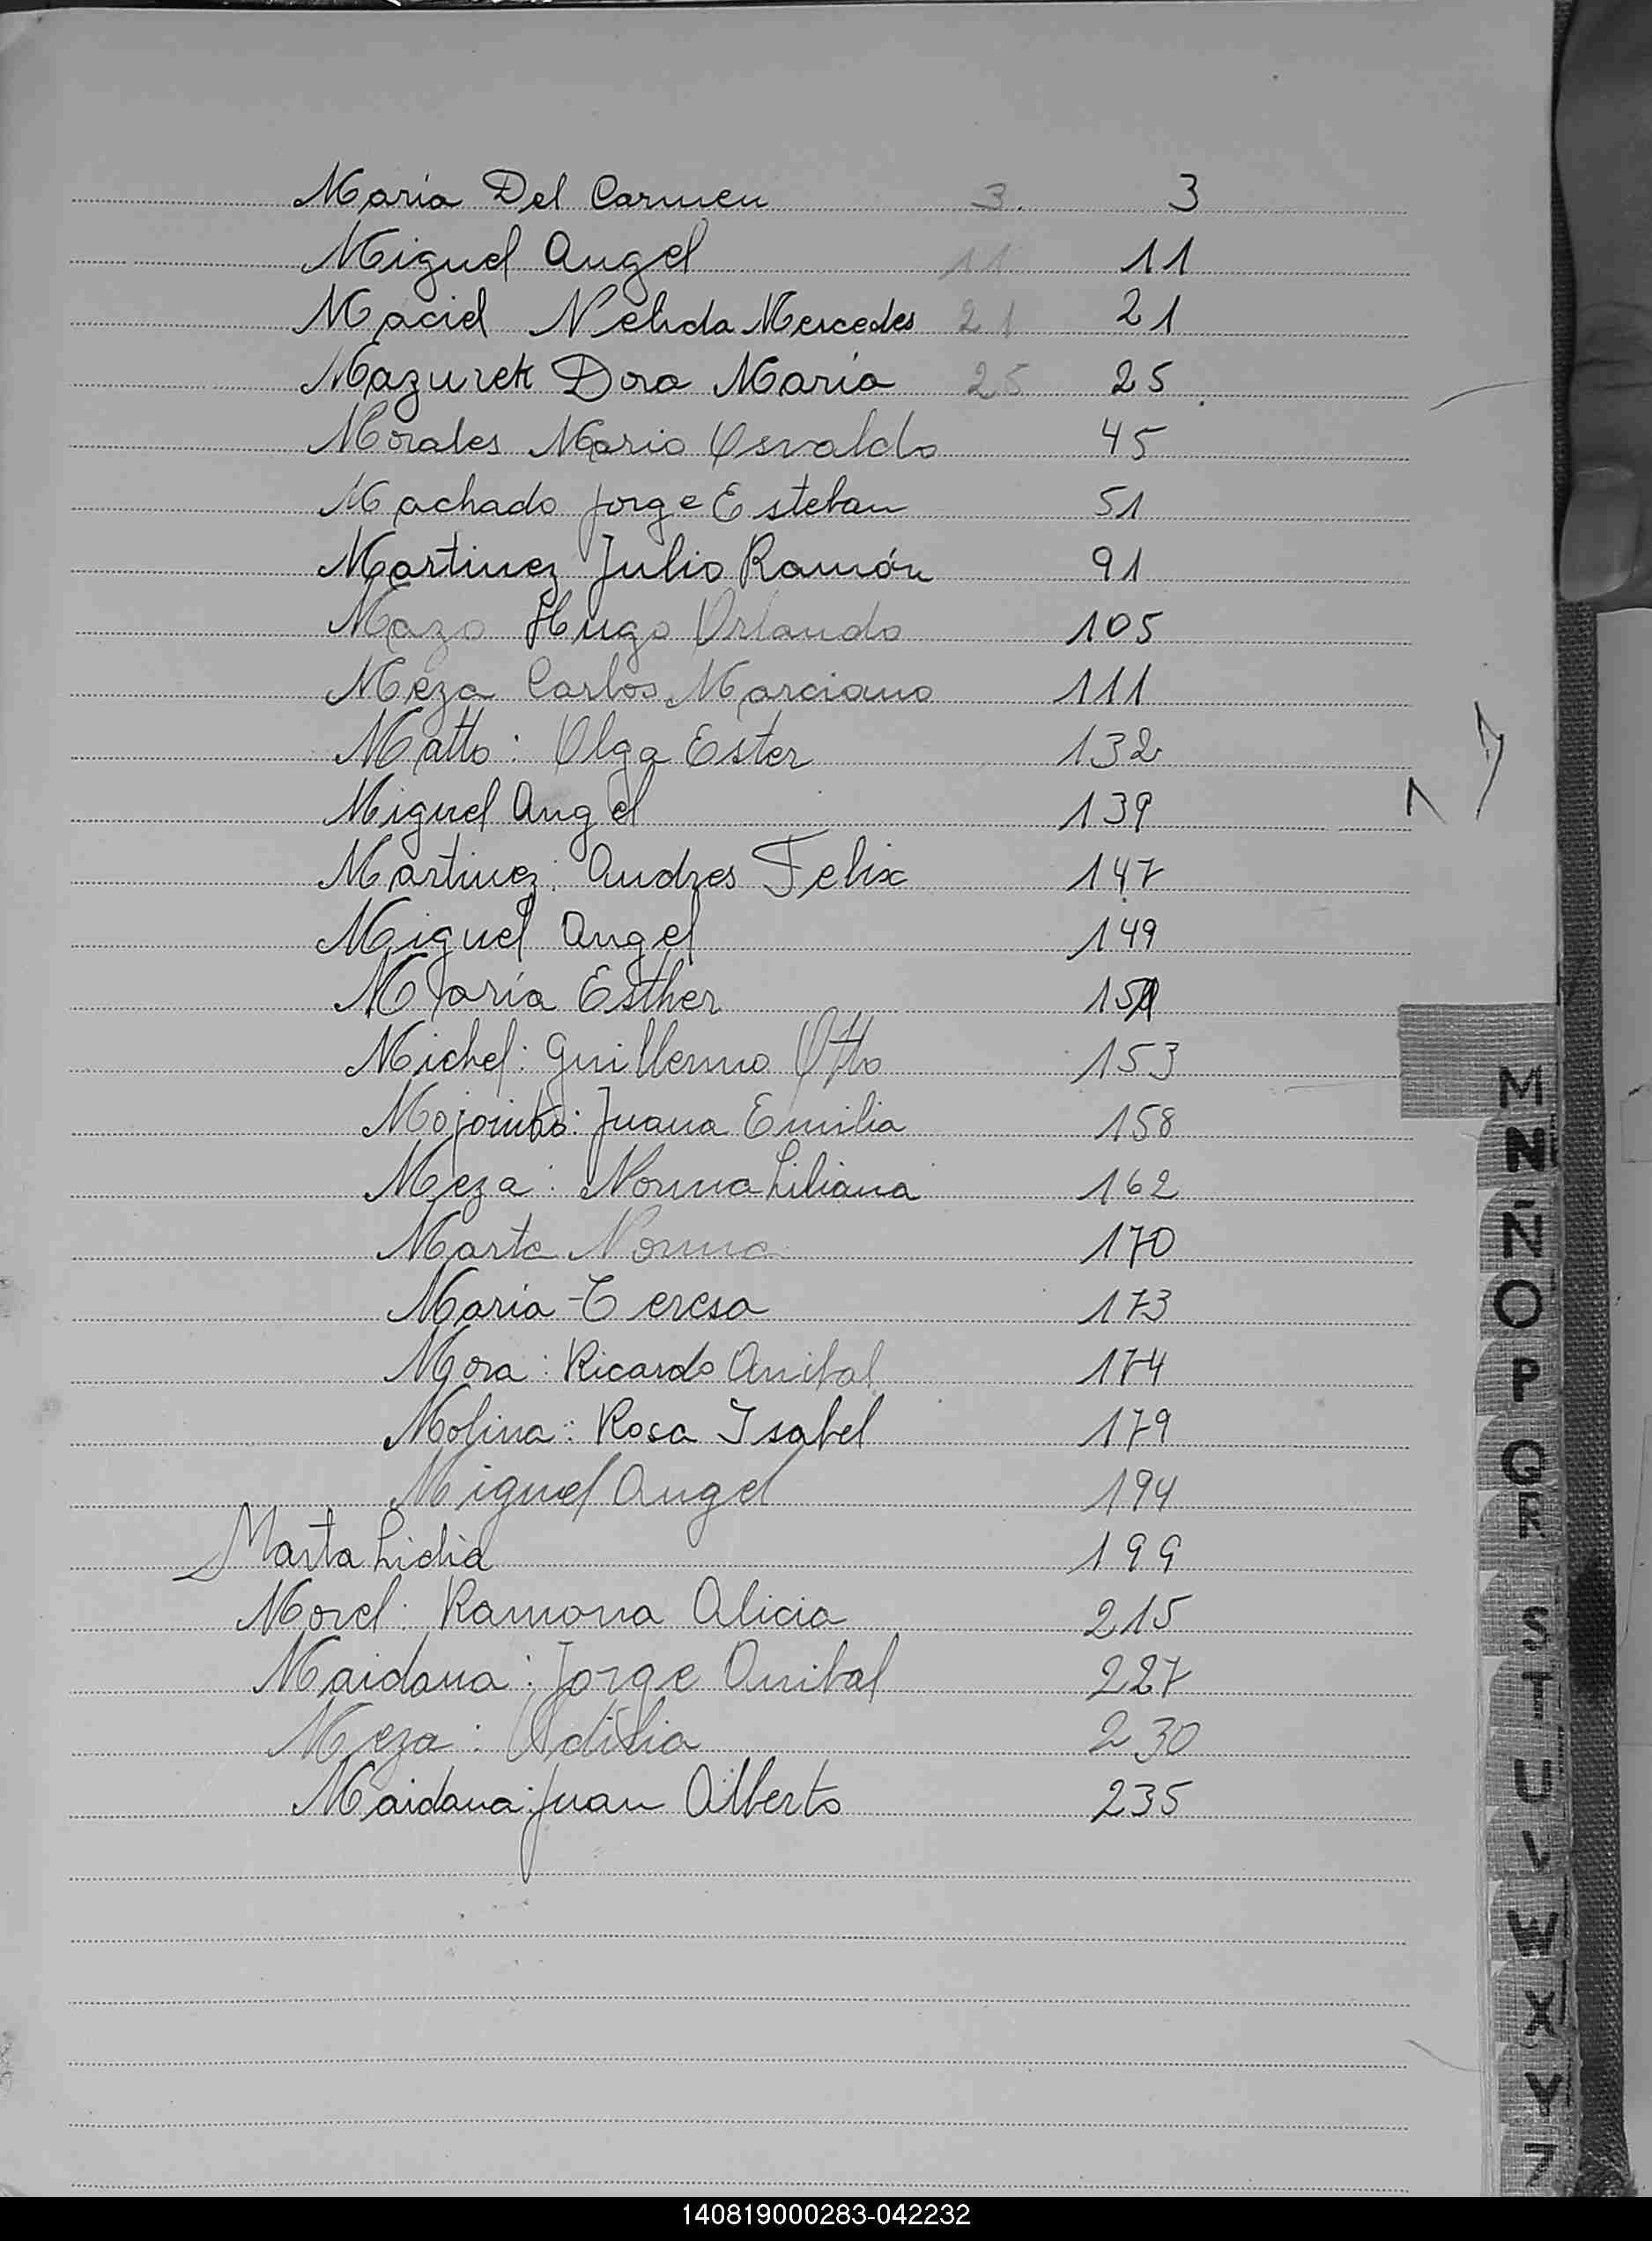 Maria Del Carmen 3. 3
Miguel Angel 11 11
Maciel Nelida Mercedes 21 21
Mazurek Dora Maria 25 25
Morales Mario Osvaldo 45
Machado Jorge Esteban 51
Martinez Julio Ramón 91
Mazo Hugo Orlando 105
Meza Carlos Marciano 111
Matto: Olga Ester 132
Miguel Angel 139
Martinez: Andres Felix 147
Miguel Angel 149
Maria Esther
Michel: Guillermo Otto 153
Juana Emilia 158
Meza: Norma Liliana 162
Marta Norma 170
Maria Teresa 173
Mora: Ricardo Anibal 174
Molina: Rosa Isabel 179
Miguel Angel 194
Marta Lidia 199
Morel: Ramona Alicia 215
Maidana: Jorge Anibal 227
Meza: 230
Maidana: Juan Alberto 235
M
N
Ñ
O
P
Q
R
S
T
U
V
W
X
Y
Z
140819000283-042232